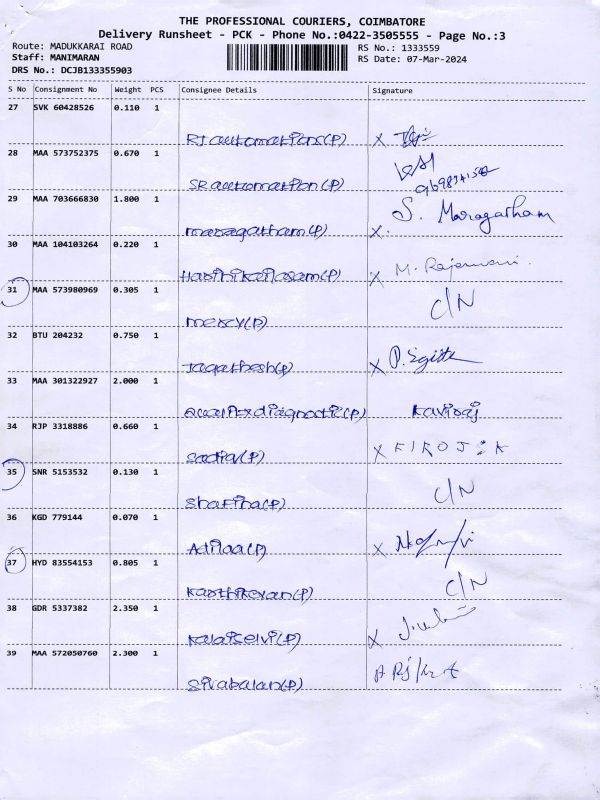 THE PROFESSIONAL COURIERS, COIMBATORE
Delivery Runsheet - PCK - Phone No.:0422-3505555 - Page No.:3
Route: MADUKKARAI ROAD RS No.: 1333559
Staff: MANIMARAN RS Date: 07-Mar-2024
DRS No.: DCJB133355903
S No Consignment No Weight PCS Consignee Details Signature
27 SVK 60428526 0.110 1
RJ automations(P) X
28 MAA 573752375 0.670 1
SR automation(P)
29 MAA 703666830 1.800 1 S. Maragatham
maragatham(P) X.
30 MAA 104103264 0.220 1
Harihikailasam(P) X M. Rajamani.
31 MAA 573980969 0.305 1 C/N
mercy(P)
32 BTU 204232 0.750 1
Jagathesh(P) X
33 MAA 301322927 2.000 1
diagnostic(P) Kaviraj
34 RJP 3318886 0.660 1
Sadiq(P) X FIROJ:K
35 SNR 5153532 0.130 1 C/N
Shafina(P)
36 KGD 779144 0.070 1
X
37 HYD 83554153 0.805 1 C/N
Karthikeyan(P)
38 GDR 5337382 2.350 1
Kalaiselvi(P) X
39 MAA 572050760 2.300 1
Sivabalan(P)